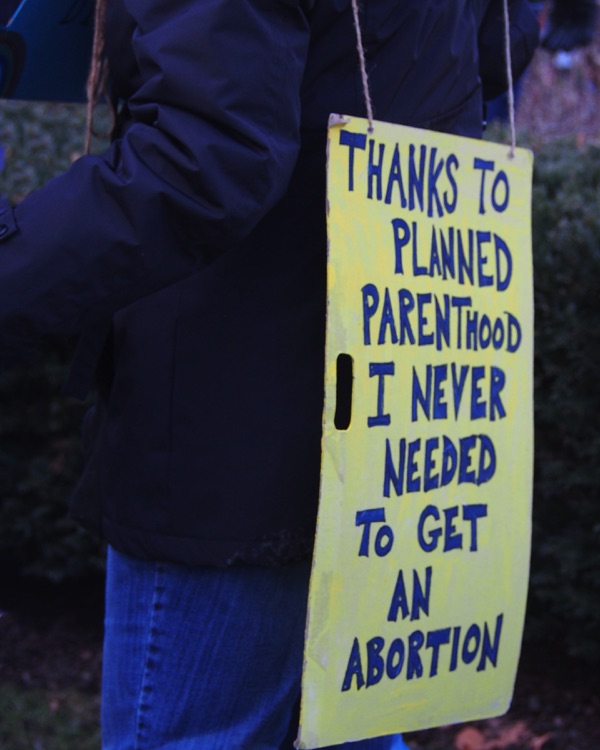 THANKS TO
PLANNED
PARENTHOOD
I NEVER
NEEDED
TO GET
AN
ABORTION